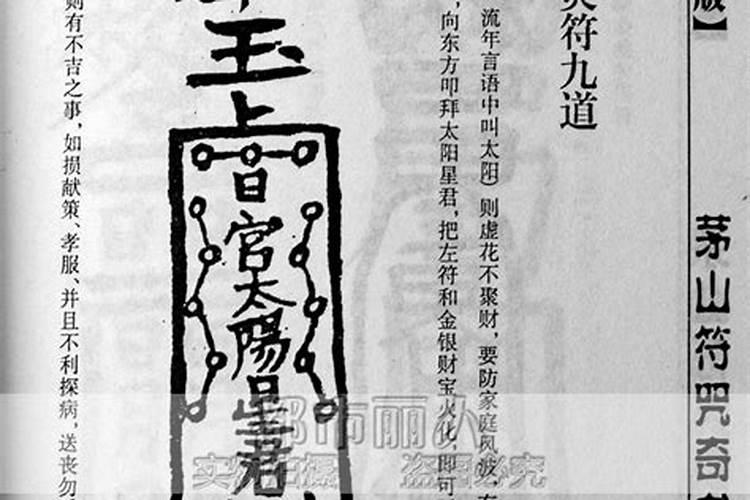 版】
茅山符咒奇
灾符九道
流年言语中叫太阳）则虚花不聚财，要防家庭风波，
，向东方叩拜太阳星君，把左符和金银财宝火化，即可
玉
上
日宫太陽星君
则有不吉之事，如损献策、孝服、并且不利探病，送丧勿
都市丽人
实物拍摄 盗图必究